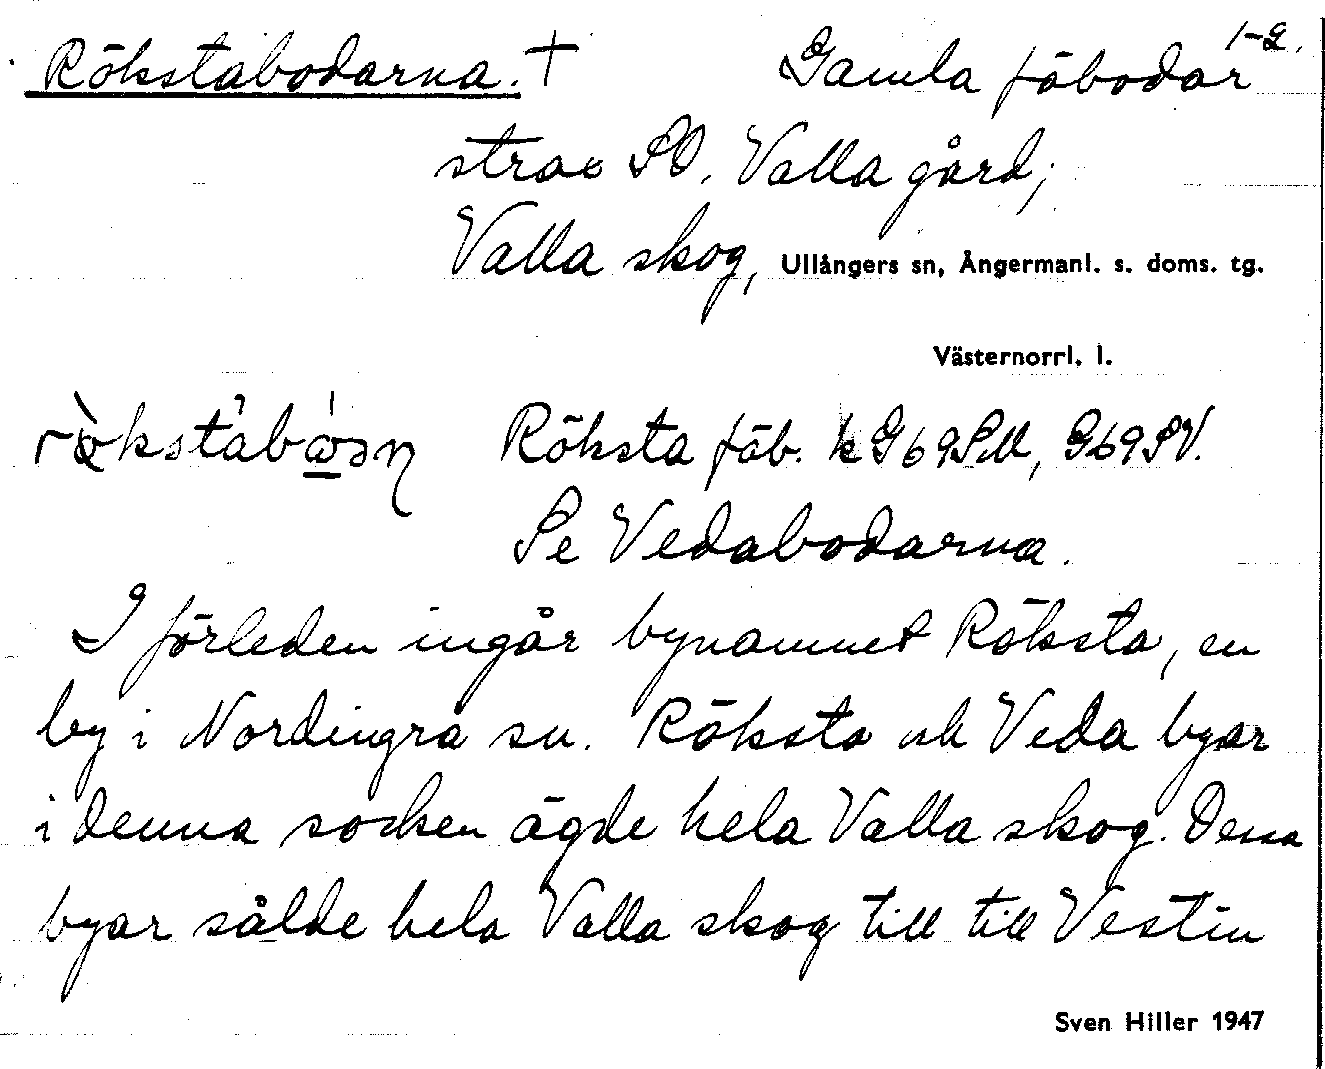 Rökstabodarna. † Gamla fäbodar 1-2.
strax SO. Valla gård;
Valla skog, Ullångers sn, Ångermanl. s. doms. tg.
Västernorrl. l.
Röksta fäb. k G69SM, G69SV.
Se Vedabodarna.
I förleden ingår bynamnet Röksta, en
by i Nordingrå sn. Röksta och Veda byar
i denna socken ägde hela Valla skog. Dessa
byar sålde hela Valla skog till till Vestin
Sven Hiller 1947